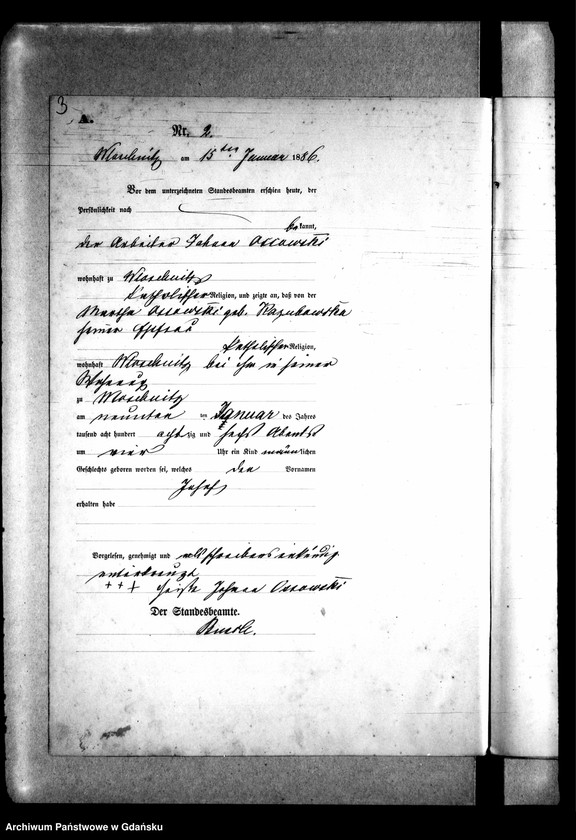 3
A.
Nr. 2.
am 15ten Januar 1886.
Vor dem unterzeichneten Standesbeamten erschien heute, der
Persönlichkeit nach
bekannt,
der Arbeiter Johann Ossowski
wohnhaft zu
katholischer Religion, und zeigte an, daß von der
Martha Ossowski geb.
seiner Ehefrau
katholischer Religion,
wohnhaft bei ihm in seiner
Wohnung
zu
am neunten ten Januar des Jahres
tausend acht hundert achtzig und sechs Abends
um vier Uhr ein Kind männlichen
Geschlechts geboren worden sei, welches den Vornamen
Josef
erhalten habe
Vorgelesen, genehmigt und
unterkreuzt
+++ Johann Ossowski
Der Standesbeamte.
Archiwum Państwowe w Gdańsku